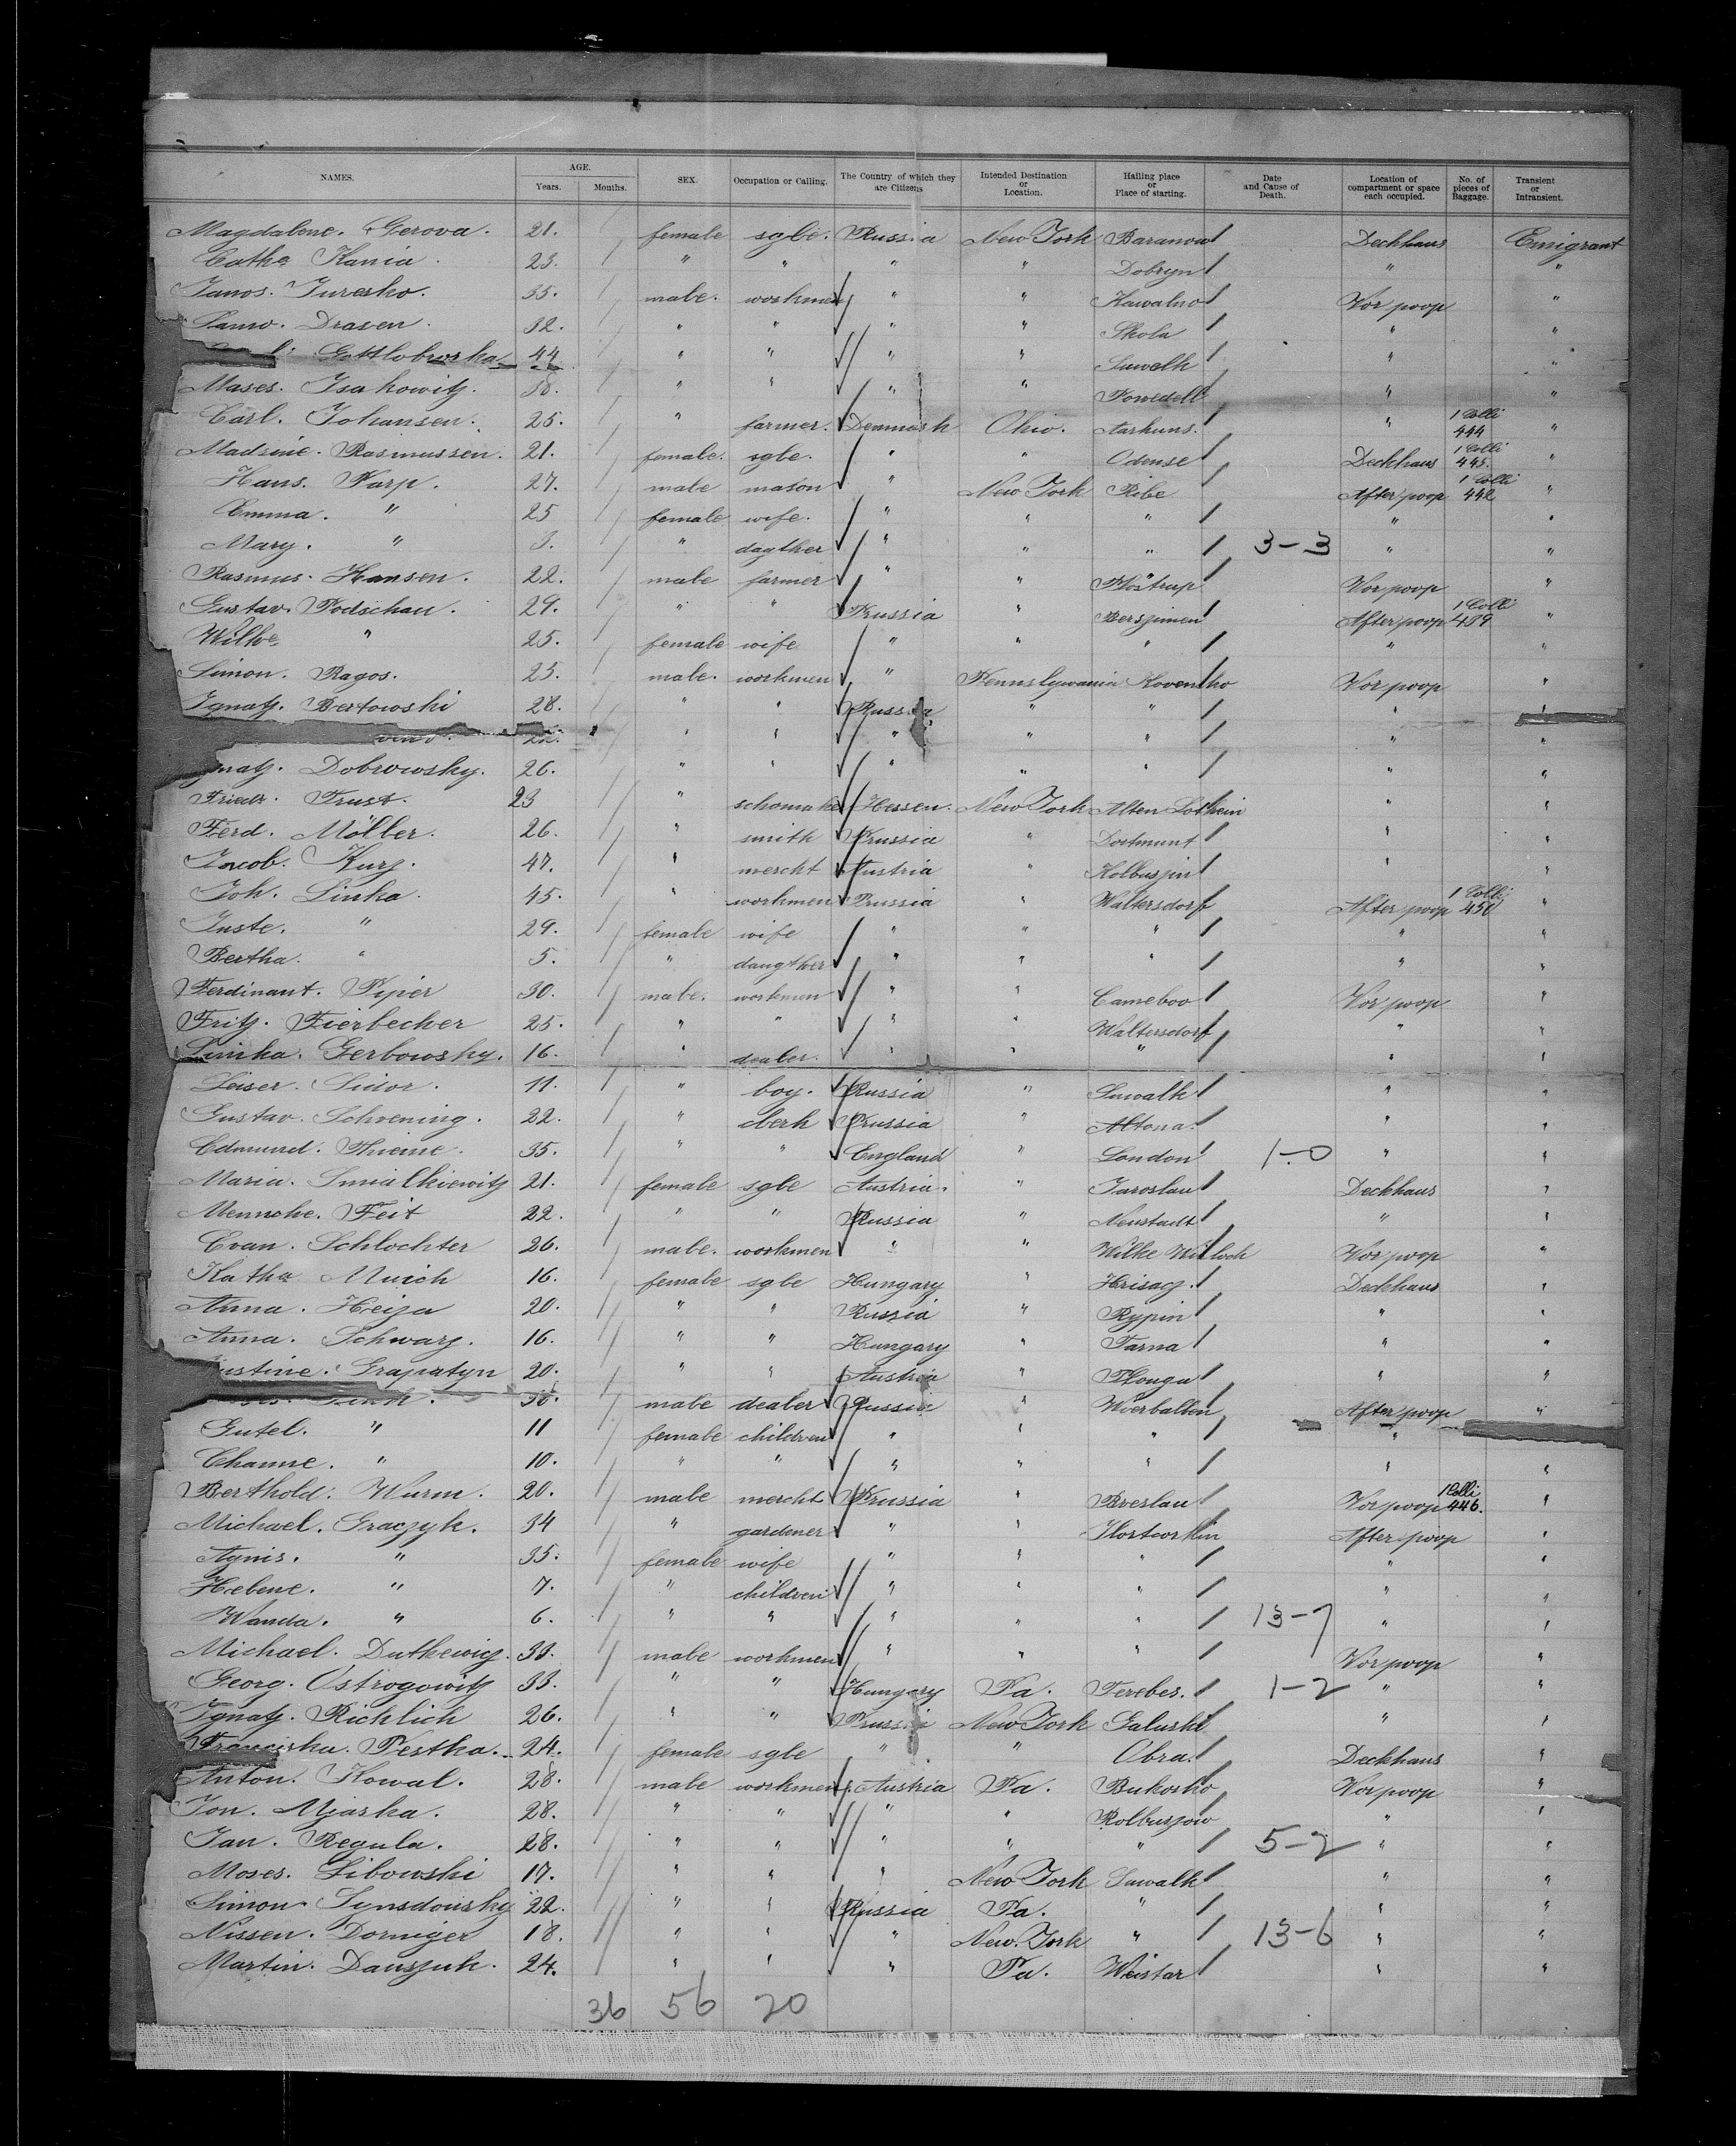 NAMES. AGE. Years. Months. SEX. Occupation or Calling. The Country of which they are Citizens Intended Destination or Location. Hailing place or Place of starting. Date and Cause of Death. Location of compartment or space each occupied. No. of pieces of Baggage. Transient or Intransient.
Magdalene. Gerova. 21. female sgle. Russia New York Baranow Deckhaus Emigrant
Cathe Kania. 23. " " " " Dobryn " "
Janos. Juresko. 35. male. workmen " " Kawalno Vor poop "
Drasen. 32. " " " " Skola " "
Gottlobwska 44 " " " " Suwalk " "
Moses. Isakowitz. 38. " " " " Powedell " "
Carl. Johansen. 25. " farmer. Denmark Ohio. Aarhuus. " 1 Colli 444 "
Madsine. Rasmussen. 21. female. sgle. " " Odense Deckhaus 1 Colli 445. "
Hans. Karp. 27. male mason " New York Ribe After poop 1 Colli 442 "
Emma. " 25 female wife. " " " " "
Mary. " 3. " dagther " " " 3-3 " "
Rasmus. Hansen. 22. male farmer " " Vor poop "
Gustav. Podschau. 29. " " Prussia " Bersjimen After poop 1 Colli 439 "
Wilhe " 25. female wife " " " " "
Simon. Ragos. 25. male. workmen " Pennslywania Kovensko Vor poop "
Ignatz. Bertowski 28. " " Russia " " " "
22. " " " " " " "
Dobrowsky. 26. " " " " " " "
Friedr. Trust. 23 " schomaker Hessen. New York Alten Lotheim " "
Ferd. Möller. 26. " smith Prussia " Dortmunt " "
Jacob. Kurz. 47. " mercht Austria " Kolbuszin " "
Joh. Linka. 45. " workmen Prussia " Waltersdorf After poop 1 Colli 450 "
Juste. " 29. female wife " " " " "
Bertha. " 5. " daugther " " " " "
Ferdinant. Piper 30. male. workmen " " Cameboo Vor poop "
Fritz. Fierbecher 25. " " " " Waltersdorf " "
Simka. Gerbowsky. 16. " dealer. " " " " "
Leiser. Sidor. 11. " boy. Russia " Suwalk " "
Gustav. Schoening. 22. " clerk Prussia " Altona. " "
Edmund. Thieme. 35. " " England " London 1-0 " "
Maria. Smialkiewitz 21. female sgle Austria. " Jaroslau Deckhaus "
Mennche. Feit 22. " " Russia " Neustadt " "
Evan. Schlochter 26. male. workmen " " Wilke Vor poop "
Katha Muich 16. female sgle Hungary " Hrisacz. Deckhaus "
Anna. Heiza 20. " " Russia " Rypin " "
Anna. Schwarz. 16. " " Hungary " Tarna " "
Grapatyn 20. " " Austria " Plongu " "
30. male dealer Russia " Wierballen After poop "
Gutel. " 11 female children " " " "
Channe. " 10. " " " " " " "
Berthold. Wurm. 20. male mercht Prussia " Breslau Vor poop 1 Colli 446. "
Michael. Graczyk. 34 " gardener " " After poop "
Agnis. " 35. female wife " " " " "
Helene. " 7. " children " " " " "
Wanda. " 6. " " " " " 13-7 " "
Michael. Dutkewicz. 33. male workmen " " " Vor poop "
Georg. Ostrogowitz 33. " " Hungary Pa. Terebes. 1-2 " "
Ignatz. Richlich 26. " " Prussia New York Galuski " "
Franciska. Pestka. 24. female sgle " " Obra. Deckhaus "
Anton. Kowal. 28. male workmen Austria Pa. Bukosko Vor poop "
Jon. Mjaska. 28. " " " " Kolbuszow " "
Jan. Regula. 28. " " " " " 5-2 " "
Moses. Libowski 17. " " " New York Suwalk " "
Simon Synsdousky 22. " " Russia Pa. " " "
Nissen. Domiger 18. " " " New York " 13-6 " "
Martin. Dauszuk. 24. " " " Pa. Weistar " "
36 56 20